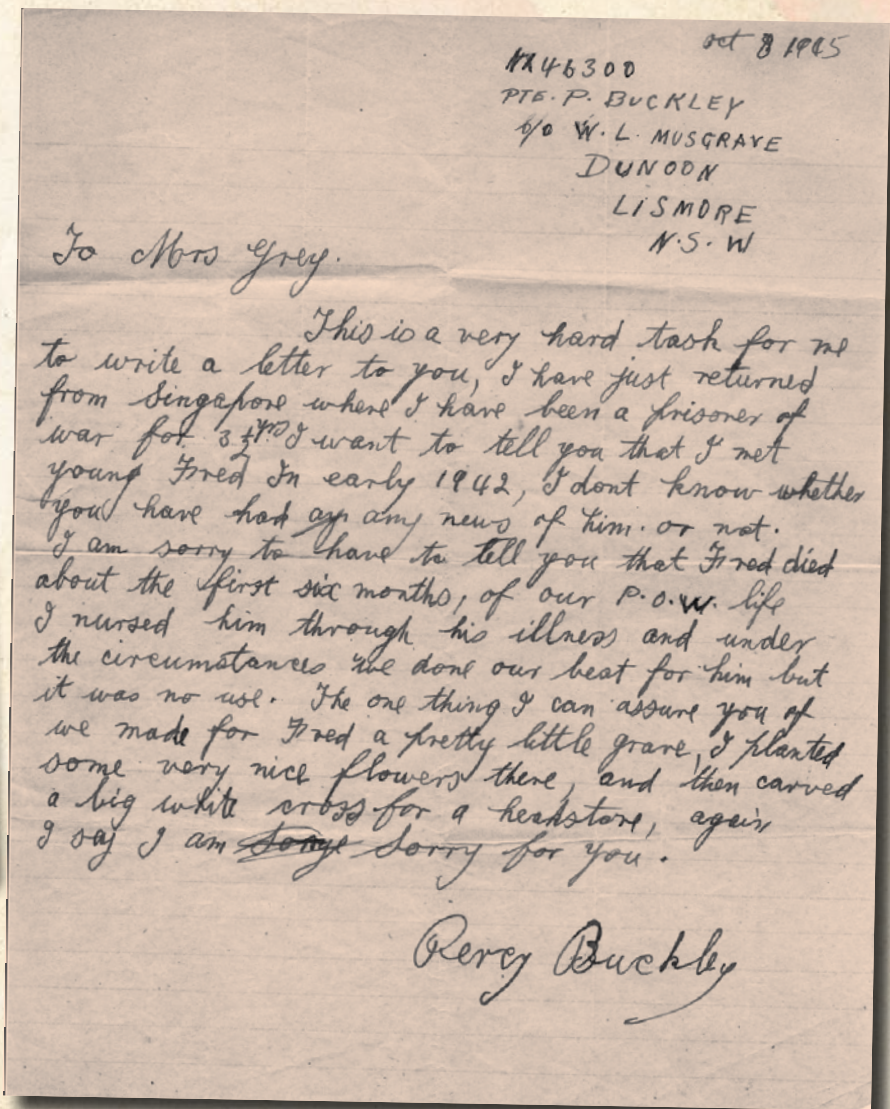 oct 8 1945
NX46300
PTE. P. BUCKLEY
C/o W. L. MUSGRAVE
DUNOON
LISMORE
N.S.W
To Mrs Grey.
This is a very hard task for me
to write a letter to you, I have just returned
from Singapore where I have been a prisoner of
war for 3½ yrs I want to tell you that I met
young Fred In early 1942, I dont know whether
you have had any news of him. or not.
I am sorry to have to tell you that Fred died
about the first six months, of our P.O.W. life
I nursed him through his illness and under
the circumstances we done our best for him but
it was no use. The one thing I can assure you of
we made for Fred a pretty little grave, I planted
some very nice flowers there, and then carved
a big white cross for a headstone, again
I say I am sorry for you.
Percy Buckley